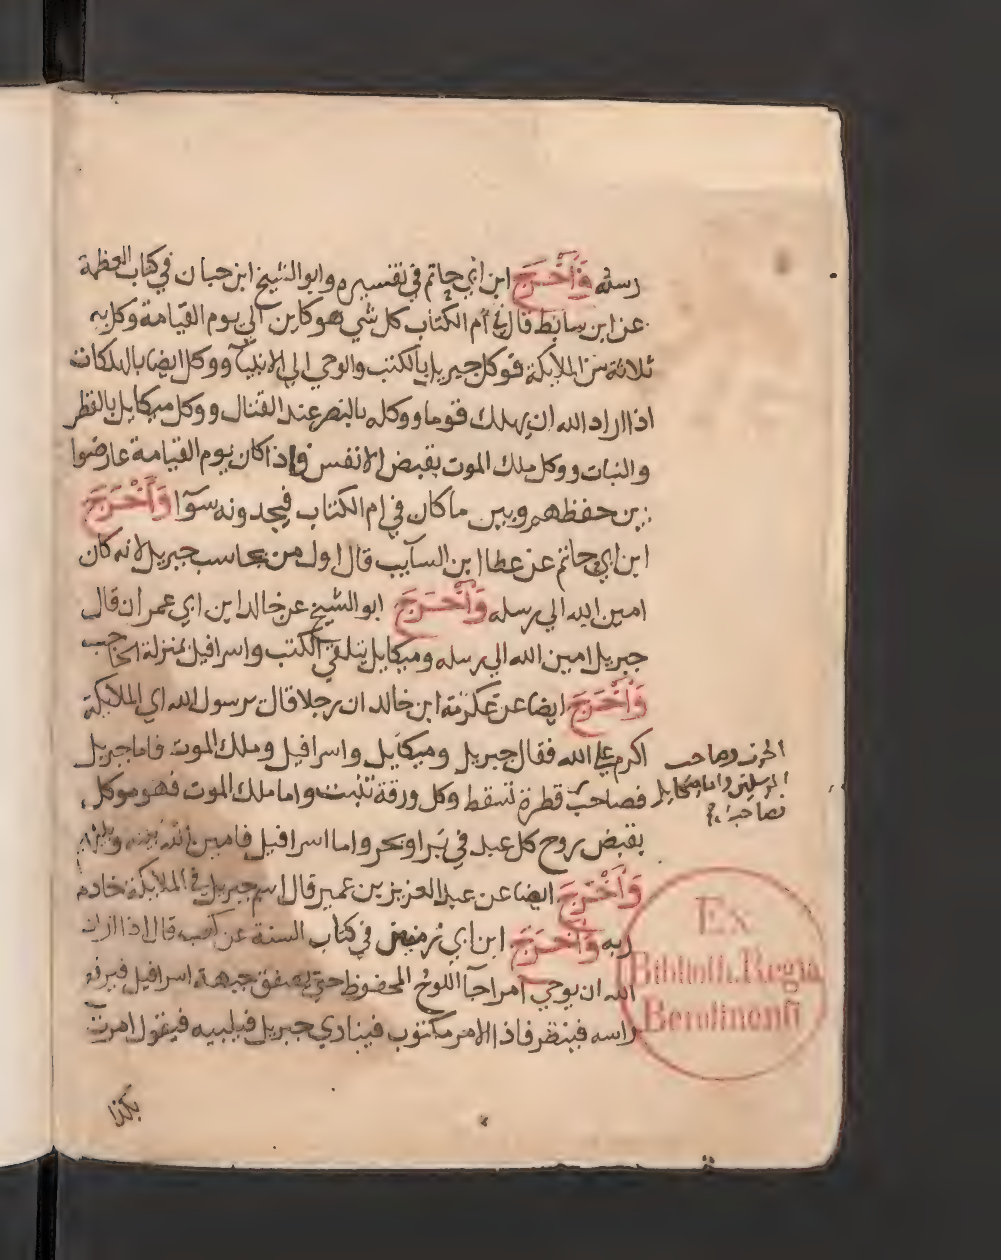 رسله وَأَخْرَجَ ابن أبي حاتم في تفسيره وابو الشيخ ابن حبان في كتاب العظمة
عن ابن سابط قال في أم الكتاب كل شي هو كاين الي يوم القيامة وكل به
ثلاثة من الملايكة فوكل جبريل بالكتب والوحي الي الانبيآ ووكل ايضا بالهلكات
اذا اراد الله ان يهلك قوما ووكله بالنصر عند القتال ووكل ميكايل بالقطر
والنبات ووكل ملك الموت بقبض الانفس فاذا كان يوم القيامة عارضوا
بين حفظهم وبين ما كان في ام الكتاب فيجدونه سوآا وَأَخْرَجَ
ابن ابي حاتم عن عطاا ابن السآيب قال اول من يحاسب جبريل لانه كان
امين الله الي رسله وَأَخْرَجَ ابو الشيخ عن خالد ابن ابي عمران قال
جبريل امين الله الي رسله وميكايل يتلقي الكتب واسرافيل بمنزلة الحاجب
وَأَخْرَجَ ايضا عن عكرمة ابن خالد ان رجلا قال يرسول الله اي الملايكة
اكرم علي الله فقال جبريل وميكآيل واسرافيل وملك الموت فاما جبريل
الحرب وصاحب
المرسلين واما ميكايل
فصاحب
فصاحب قطرة تسقط وكل ورقة تنبت واما ملك الموت فهو موكل
بقبض روح كل عبد في بَر او بحر واما اسرافيل فامين الله بينه وبينهم
وَأَخْرَجَ ايضا عن عبد العزيز بن عمير قال اسم جبريل في الملايكة خادم
ربه وَأَخْرَجَ ابن ابي زمنين في كتاب السنة عن كعب قال اذا اراد
الله ان يوحي امرا جآ اللوحُ المحفوظ حتي يصفق جبهة اسرافيل فيرفع
راسه فينظر فاذا الامر مكتوب فينادي جبريل فيلبيه فيقول امرت
بكذا
Ex
Biblioth. Regia
Berolinensi